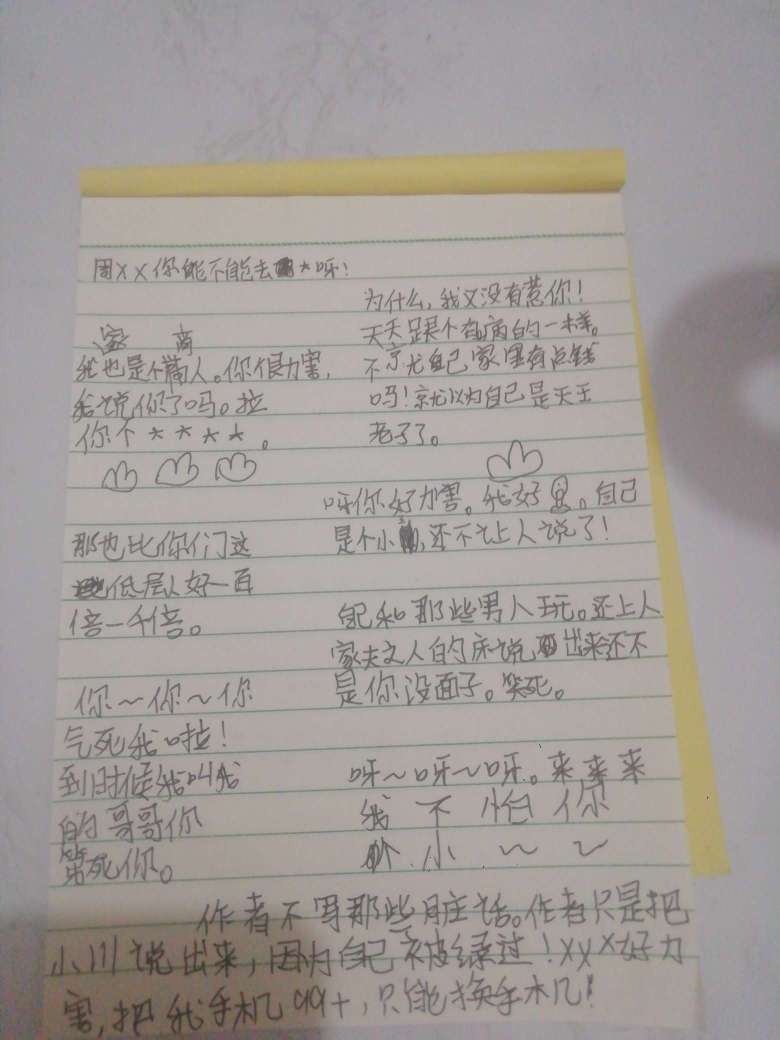 周XX你能不能去*呀！
为什么,我又没有惹你！
天天跟个有病的一样。
不京尤自己家里有点钱
吗！京尤以为自己是天王
老子了。
家 商
我也是个人。你很力害,
我说你了吗。拉
你个****。
呀你好力害。我好。自己
是个小,还不让人说了！
那也比你们这
低层人好一百
倍一千倍。
配和那些男人玩。还上人
家夫文人的床说出来还不
是你没面子。笑死。
你~你~你
气死我啦！
到时候我叫我
的哥哥你
弟死你。
呀~呀~呀。来来来
我不怕你
小~~
作者不写那些脏话。作者只是把
小川说出来,因为自己被绿过！XXX好力
害,把我手机99+,只能换手机！